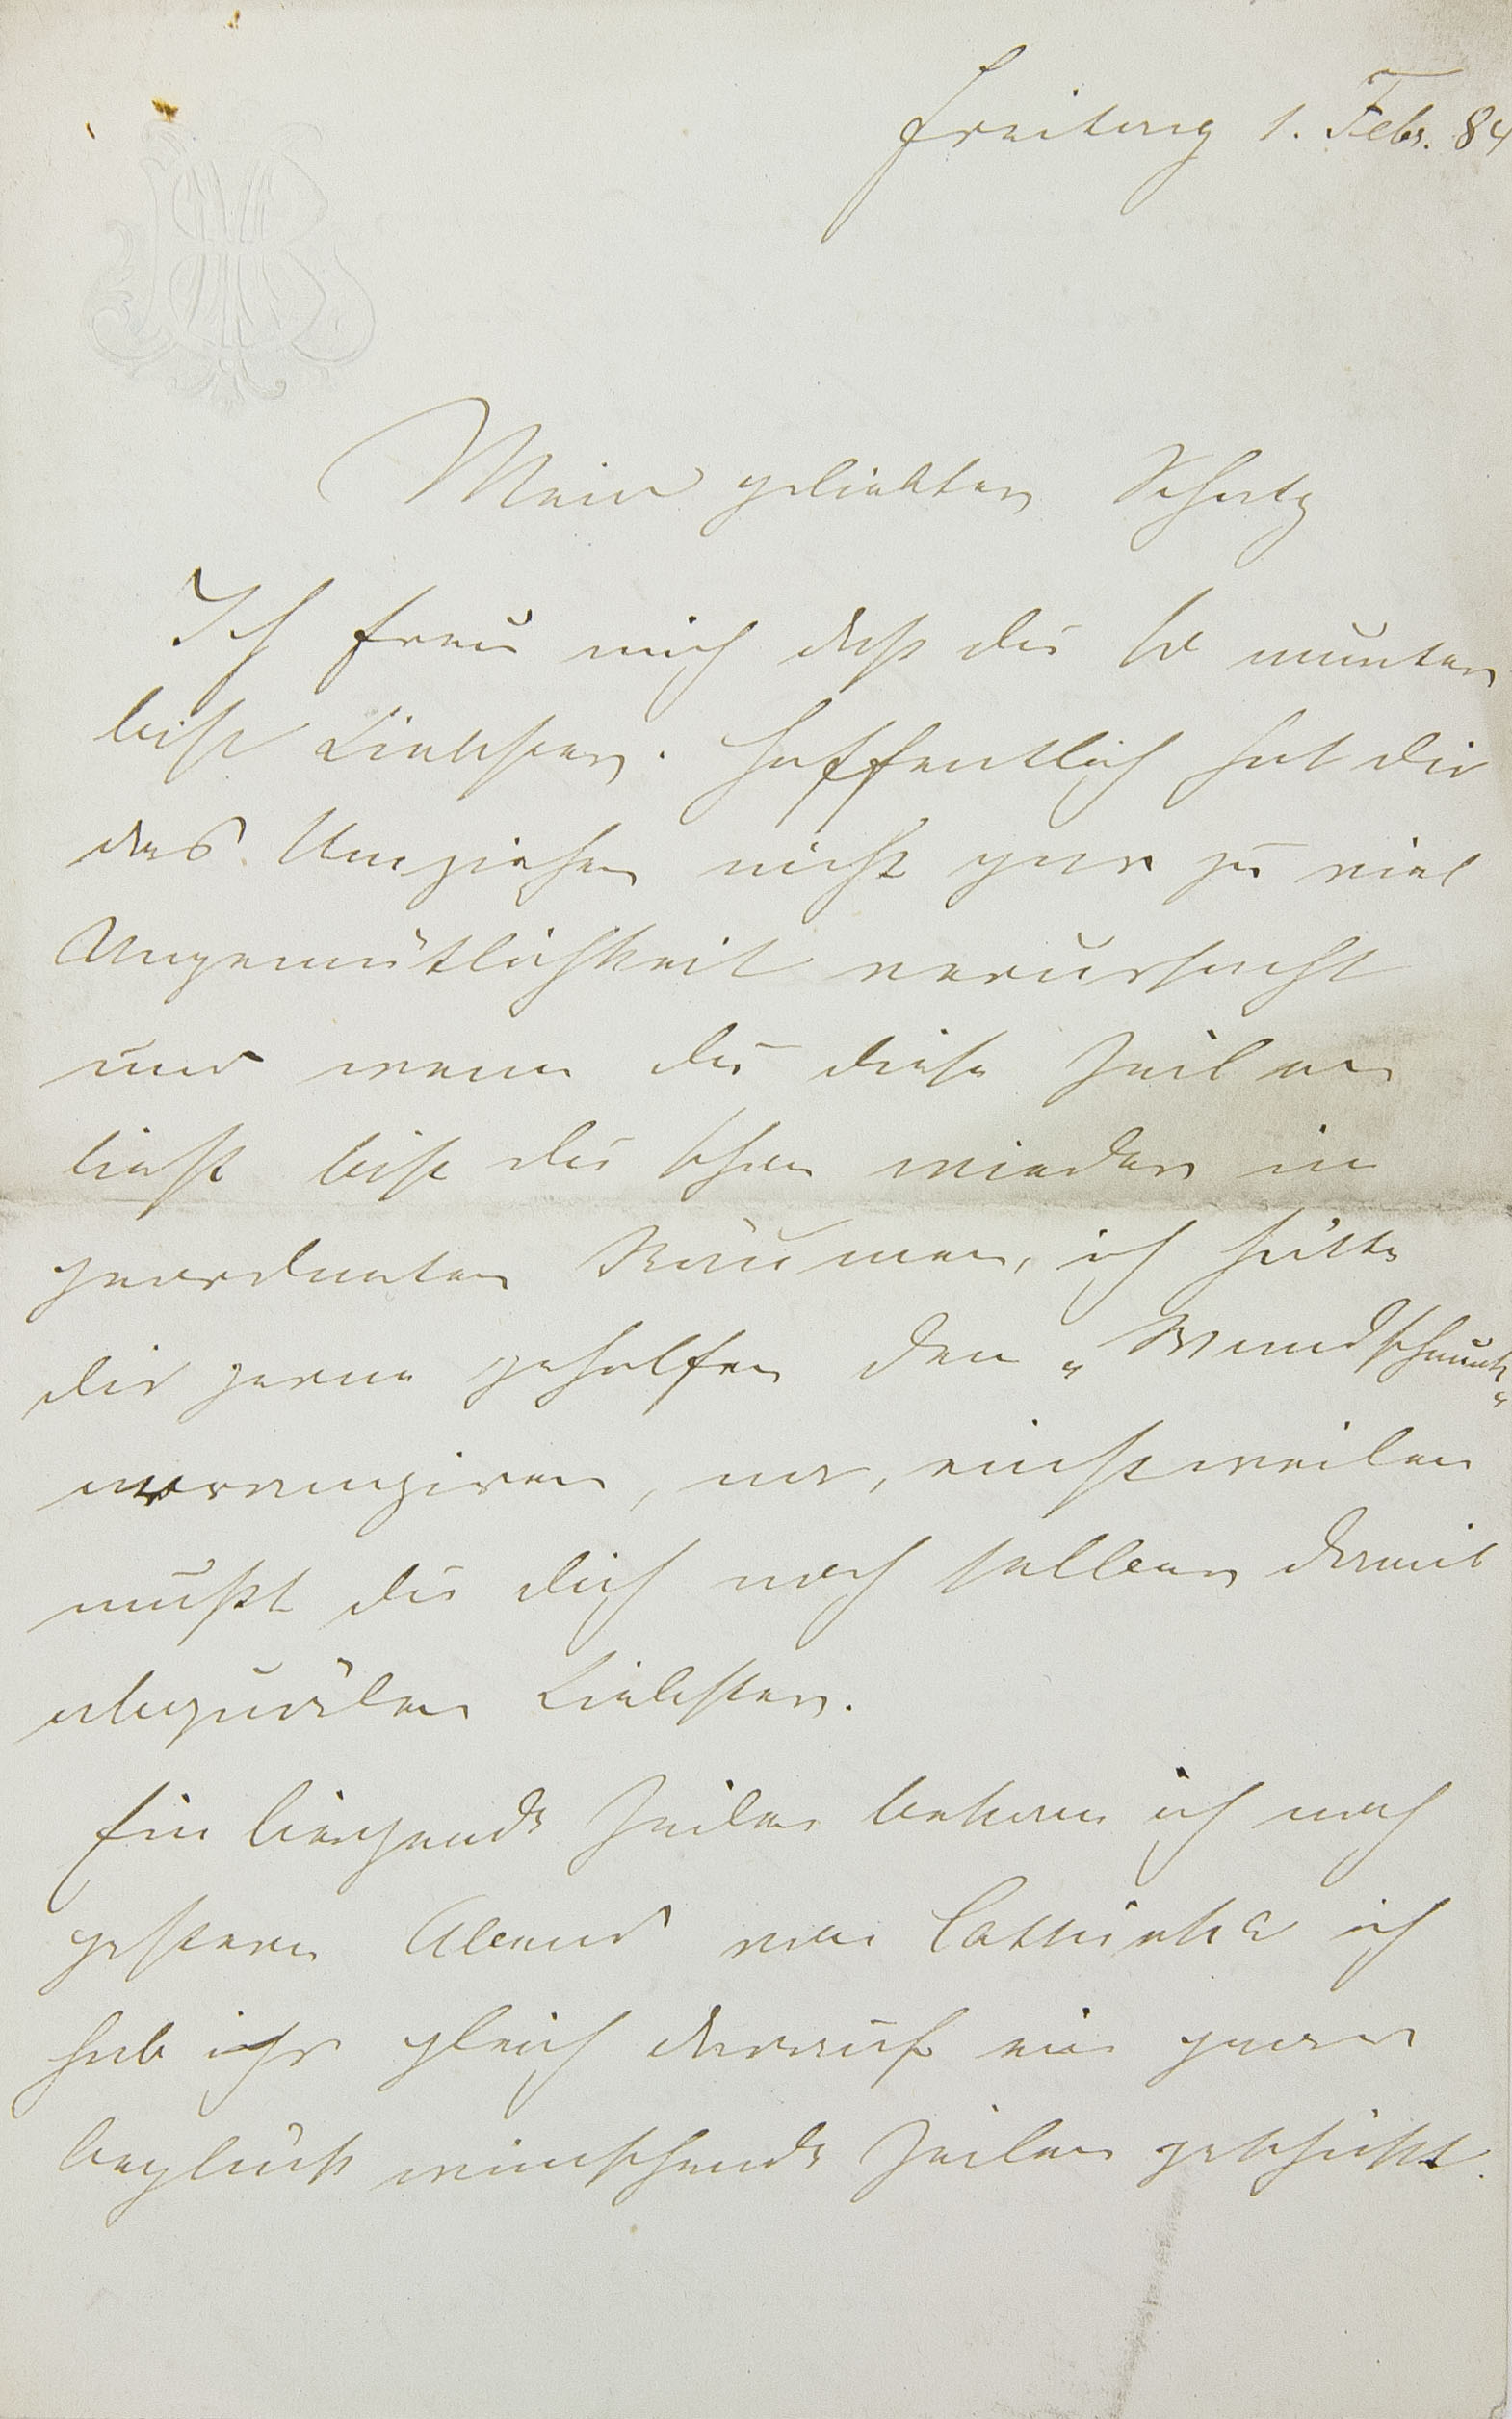 Freitag 1. Febr. 84
Mein geliebter Schatz
Ich freu mich daß du so munter
bist Liebster. Hoffentlich hat dir
das Umziehen nicht gar zu viel
Ungemütlichkeit verursacht
und wenn du diese Zeilen
liest bist du schon wieder in
geordneten Räumen, ich hätte
dir gerne geholfen den „Wandschmuck"
arrangiren, na, einstweilen
mußt du dich noch selber damit
abquälen Liebster.
Ein liegende Zeilen bekam ich noch
gestern Abend von ich
hab ihr gleich darauf ein paar
beglück wünschende Zeilen geschickt.